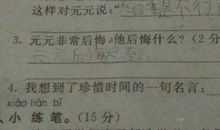 这样对元元说:“
3. 元元非常后悔,他后悔什么?(2分
4. 我想到了珍惜时间的一句名言:
xiǎo liàn bǐ
小 练 笔。(15 分)